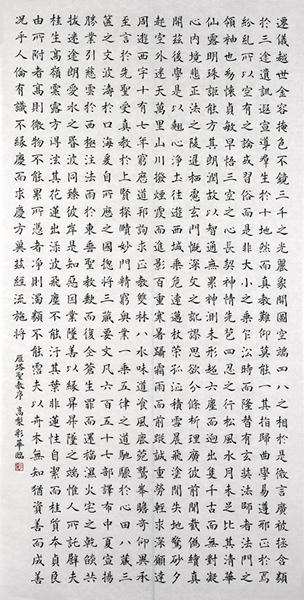 遷儀越世金容掩色不鏡三千之光麗象開圖空端四八之相於是微言廣被拯含類
於三途遺訓遐宣導群生於十地然而真教難仰莫能一其指歸曲學易遵邪正於焉
紛糺所以空有之論或習俗而是非大小之乘乍沿時而隆替有玄奘法師者法門之
領袖也幼懷貞敏早悟三空之心長契神情先苞四忍之行松風水月未足比其清華
仙露明珠詎能方其朗潤故以智通無累神測未形超六塵而迥出隻千古而無對凝
心內境悲正法之陵遲栖慮玄門慨深文之訛謬思欲分條析理廣彼前聞截偽續真
開茲後學是以翹心淨土往遊西域乘危遠邁杖策孤征積雪晨飛塗間失地驚砂夕
起空外迷天萬里山川撥煙霞而進影百重寒暑躡霜雨而前蹤誠重勞輕求深願達
周遊西宇十有七年窮歷道邦詢求正教雙林八水味道餐風鹿菀鷲峯瞻奇仰異承
至言於先聖受真教於上賢探賾妙門精窮奧業一乘五律之道馳驟於心田八藏三
篋之文波濤於口海爰自所歷之國總將三藏要文凡六百五十七部譯布中夏宣揚
勝業引慈雲於西極注法雨於東垂聖教缺而復全蒼生罪而還福濕火宅之乾焰共
拔迷途朗愛水之昏波同臻彼岸是知惡因業墜善以緣昇昇墜之端惟人所託譬夫
桂生高嶺零露方得泫其花蓮出淥波飛塵不能汙其葉非蓮性自潔而桂質本貞良
由所附者高則微物不能累所憑者淨則濁類不能霑夫以卉木無知猶資善而成善
況乎人倫有識不緣慶而求慶方冀茲經流施將
雁塔聖教序